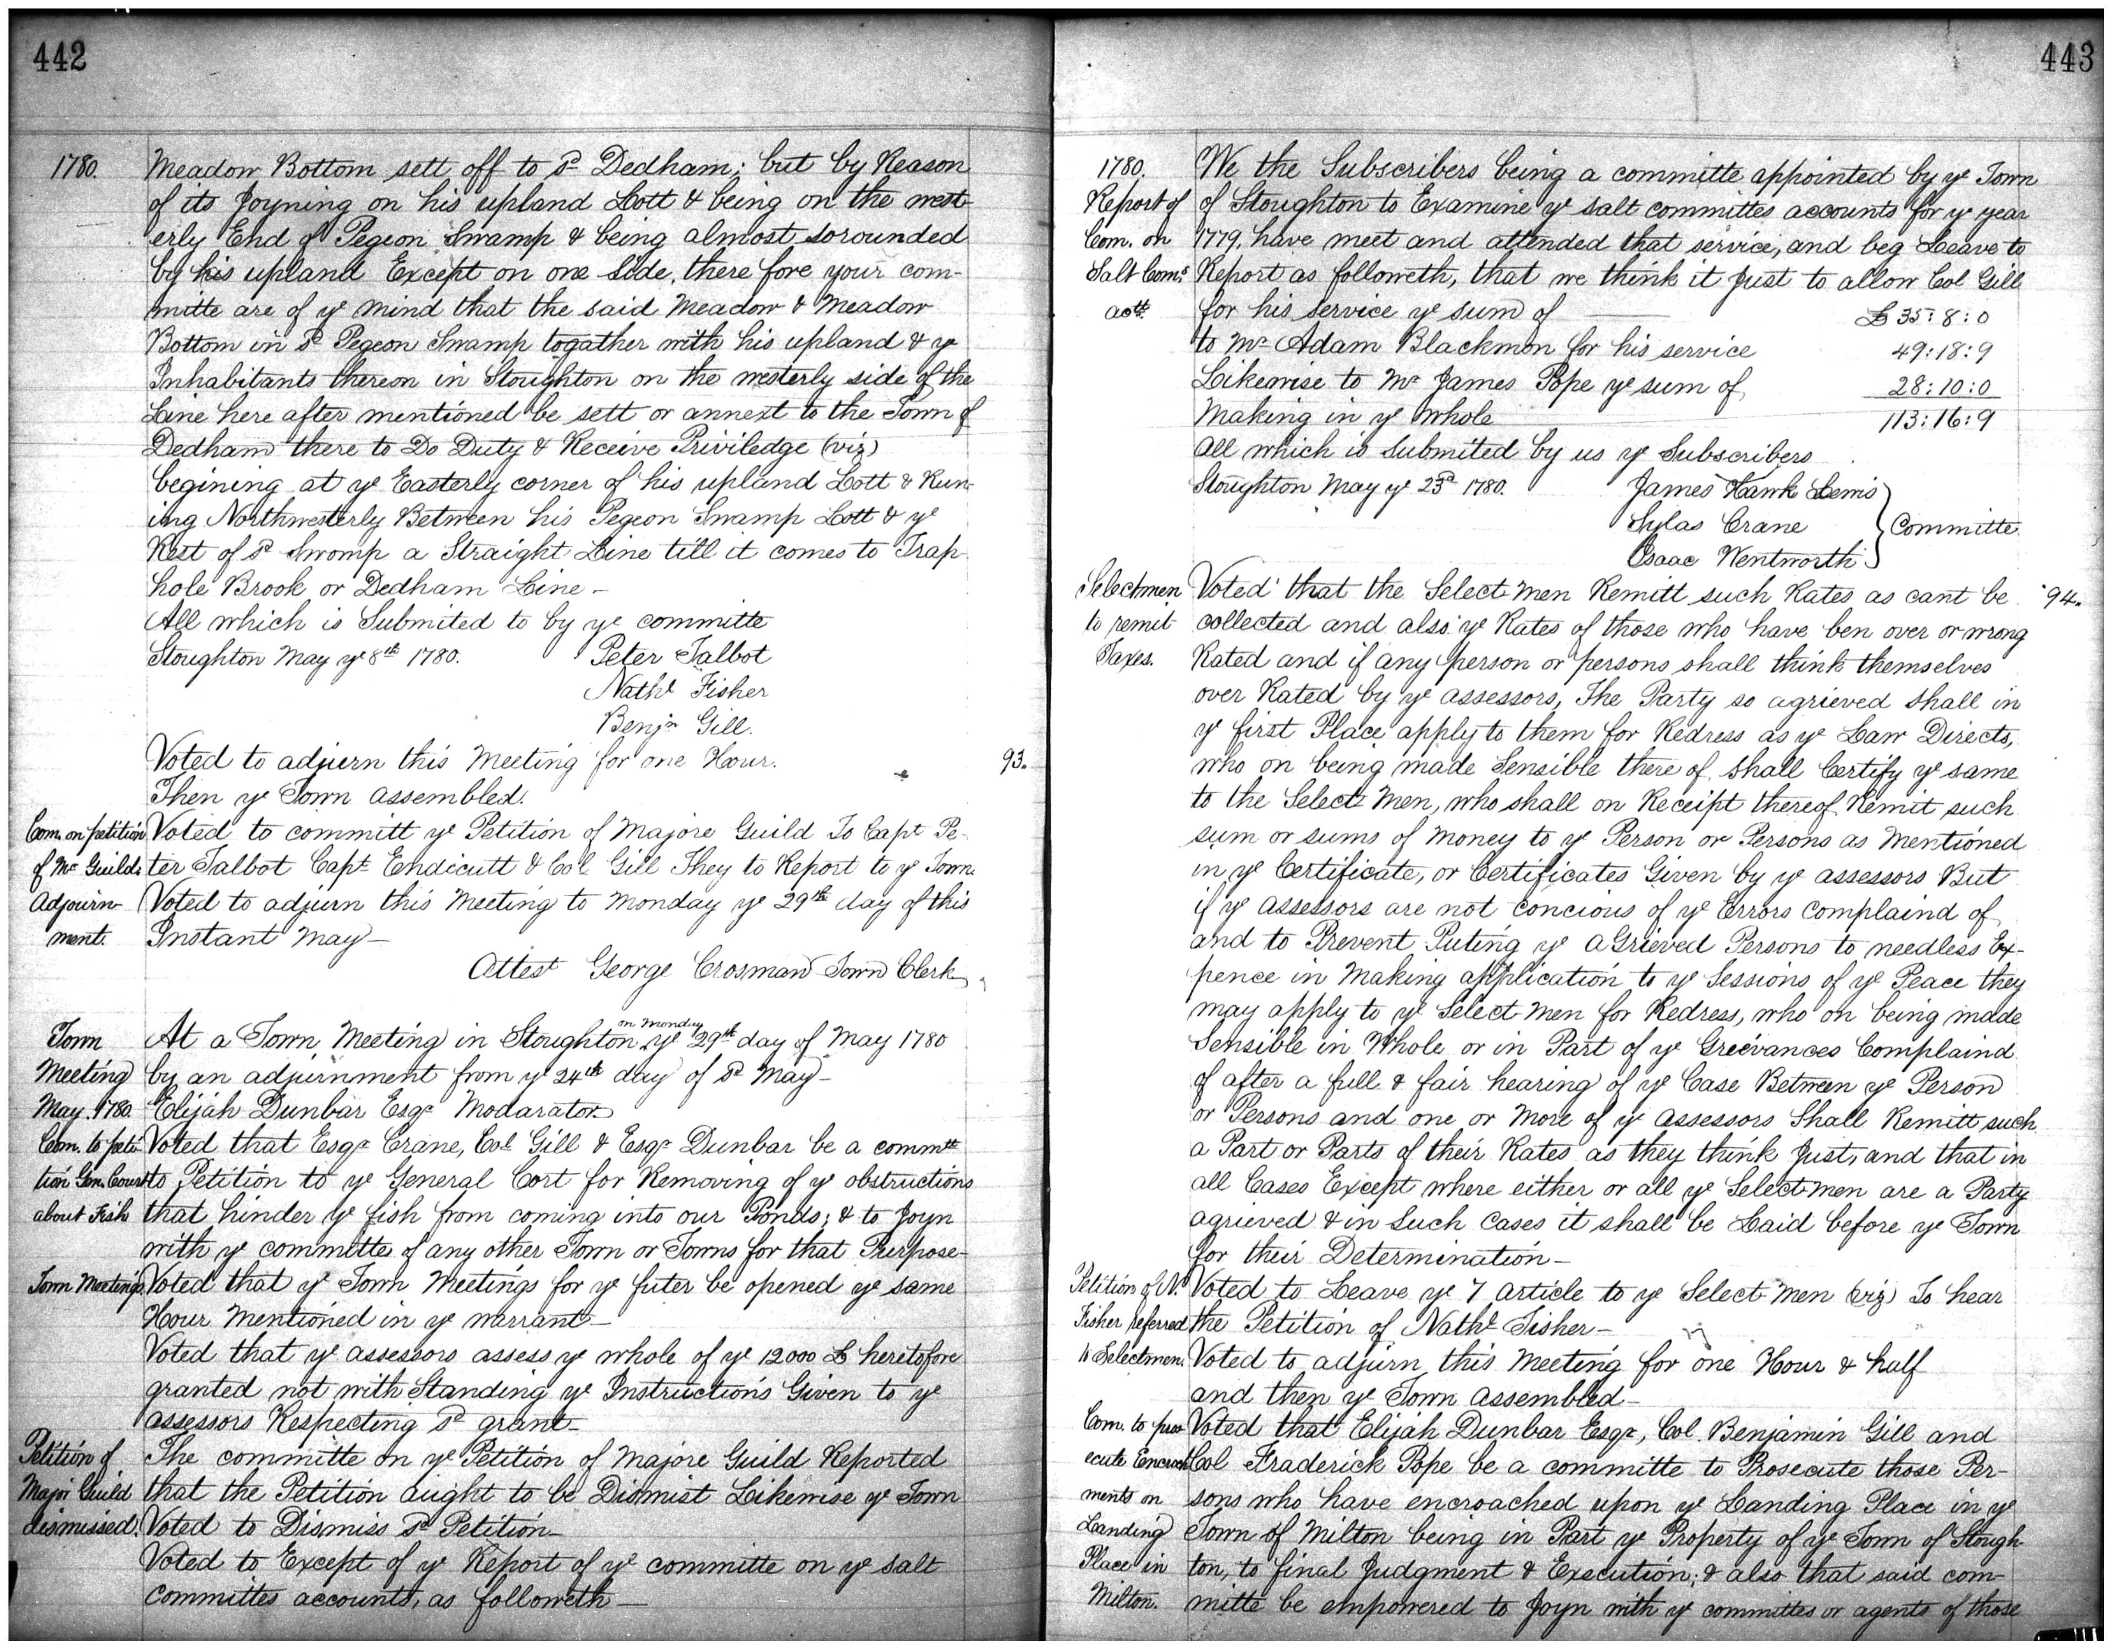 442
1780.
Meadow Bottom sett off to sd Dedham; but by Reason
of its Joyning on his upland Lott & being on the west-
erly End of Pegeon Swamp & being almost sorounded
by his upland Except on one Side, there fore your com-
mitte are of ye mind that the said Meadow & Meadow
Bottom in sd Pegeon Swamp togather with his upland & ye
Inhabitants thereon in Stoughton on the westerly side of the
Line here after mentioned be sett or annext to the Town of
Dedham there to Do Duty & Receive Priviledge (viz)
begining at ye Easterly corner of his upland Lott & Run-
ing Northwesterly Between his Pegeon Swamp Lott & ye
Rest of sd Swomp a Straight Line till it comes to Trap-
hole Brook or Dedham Line -
All which is Submited to by ye committe
Stoughton May ye 8th 1780.
Peter Talbot
Nathl Fisher
Benjn Gill.
Voted to adjurn this Meeting for one Hour.
93.
Then ye Town assembled.
Com. on petition
of Mr Guilds
Voted to committ ye Petition of Majore Guild To Capt Pe-
ter Talbot Capt Endicutt & Col Gill They to Report to ye Town.
Adjourn-
ment.
Voted to adjurn this Meeting to monday ye 29th day of this
Instant May -
Attest George Crosman Town Clerk
Town
Meeting
May. 1780.
At a Town Meeting in Stoughton on Monday ye 29th day of May 1780
by an adjurnment from ye 24th day of sd May -
Elijah Dunbar Esqr Modarator.
Com. to peti-
tion Gen. Court
about Fish
Voted that Esqr Crane, Col Gill & Esqr Dunbar be a committe
to Petition to ye General Cort for Removing of ye obstructions
that hinder ye fish from coming into our Ponds; & to Joyn
with ye committe of any other Town or Towns for that Purpose -
Town Meetings.
Voted that ye Town Meetings for ye futer be opened ye same
Hour Mentioned in ye warrant -
Voted that ye assessors assess ye whole of ye 12000 £ heretofore
granted not with Standing ye Instructions Given to ye
assessors Respecting sd grant -
Petition of
Major Guild
dismissed.
The committe on ye Petition of Majore Guild Reported
that the Petition aught to be Dismist Likewise ye Town
Voted to Dismiss sd Petition -
Voted to Except of ye Report of ye committe on ye salt
committes accounts, as followeth -
443
1780.
Report of
Com. on
Salt Coms
actt.
We the Subscribers being a committe appointed by ye Town
of Stoughton to Examine ye salt committes accounts for ye year
1779, have meet and attended that service, and beg Leave to
Report as followeth, that we think it Just to allow Col Gill
for his service ye sum of — £ 35:8:0
to Mr Adam Blackmon for his service 49:18:9
Likewise to Mr James Pope ye sum of 28:10:0
Making in ye whole 113:16:9
all which is Submited by us ye Subscribers
Stoughton May ye 23d 1780.
James Hawk Lewis
Sylas Crane
Isaac Wentworth
Committe
Selectmen
to remit
Taxes.
94.
Voted that the Select-men Remitt such Rates as cant be
collected and also ye Rates of those who have ben over or wrong
Rated and if any person or persons shall think themselves
over Rated by ye assessors, The Party so agrieved shall in
ye first Place apply to them for Redress as ye Law Directs,
who on being made Sensible there of shall Certify ye same
to the Select Men, who shall on Receipt thereof Remit such
sum or sums of money to ye Person or Persons as mentioned
in ye Certificate, or Certificates Given by ye assessors But
if ye assessors are not concious of ye Errors complaind of
and to Prevent Puting ye aGrieved Persons to needless Ex-
pence in making application to ye Sessions of ye Peace they
may apply to ye Select men for Redress, who on being made
Sensible in Whole or in Part of ye Greevances Complaind
of after a full & fair hearing of ye Case Between ye Person
or Persons and one or more of ye assessors Shall Remitt such
a Part or Parts of their Rates as they think Just, and that in
all Cases Except where either or all ye Select-men are a Party
agrieved & in such cases it shall be Laid before ye Town
for their Determination -
Petition of N.
Fisher referred
to Selectmen.
Voted to Leave ye 7 article to ye Select men (viz) To hear
the Petition of Nathl Fisher -
Voted to adjurn this Meeting for one Hour & half
and then ye Town assembled -
Com. to pros-
ecute Encroach-
ments on
Landing
Place in
Milton.
Voted that Elijah Dunbar Esqr, Col. Benjamin Gill and
Col Fraderick Pope be a committe to Prosecute those Per-
sons who have encroached upon ye Landing Place in ye
Town of Milton being in Part ye Property of ye Town of Stough-
ton, to final Judgment & Execution; & also that said com-
mitte be empowered to Joyn with ye committes or agents of those